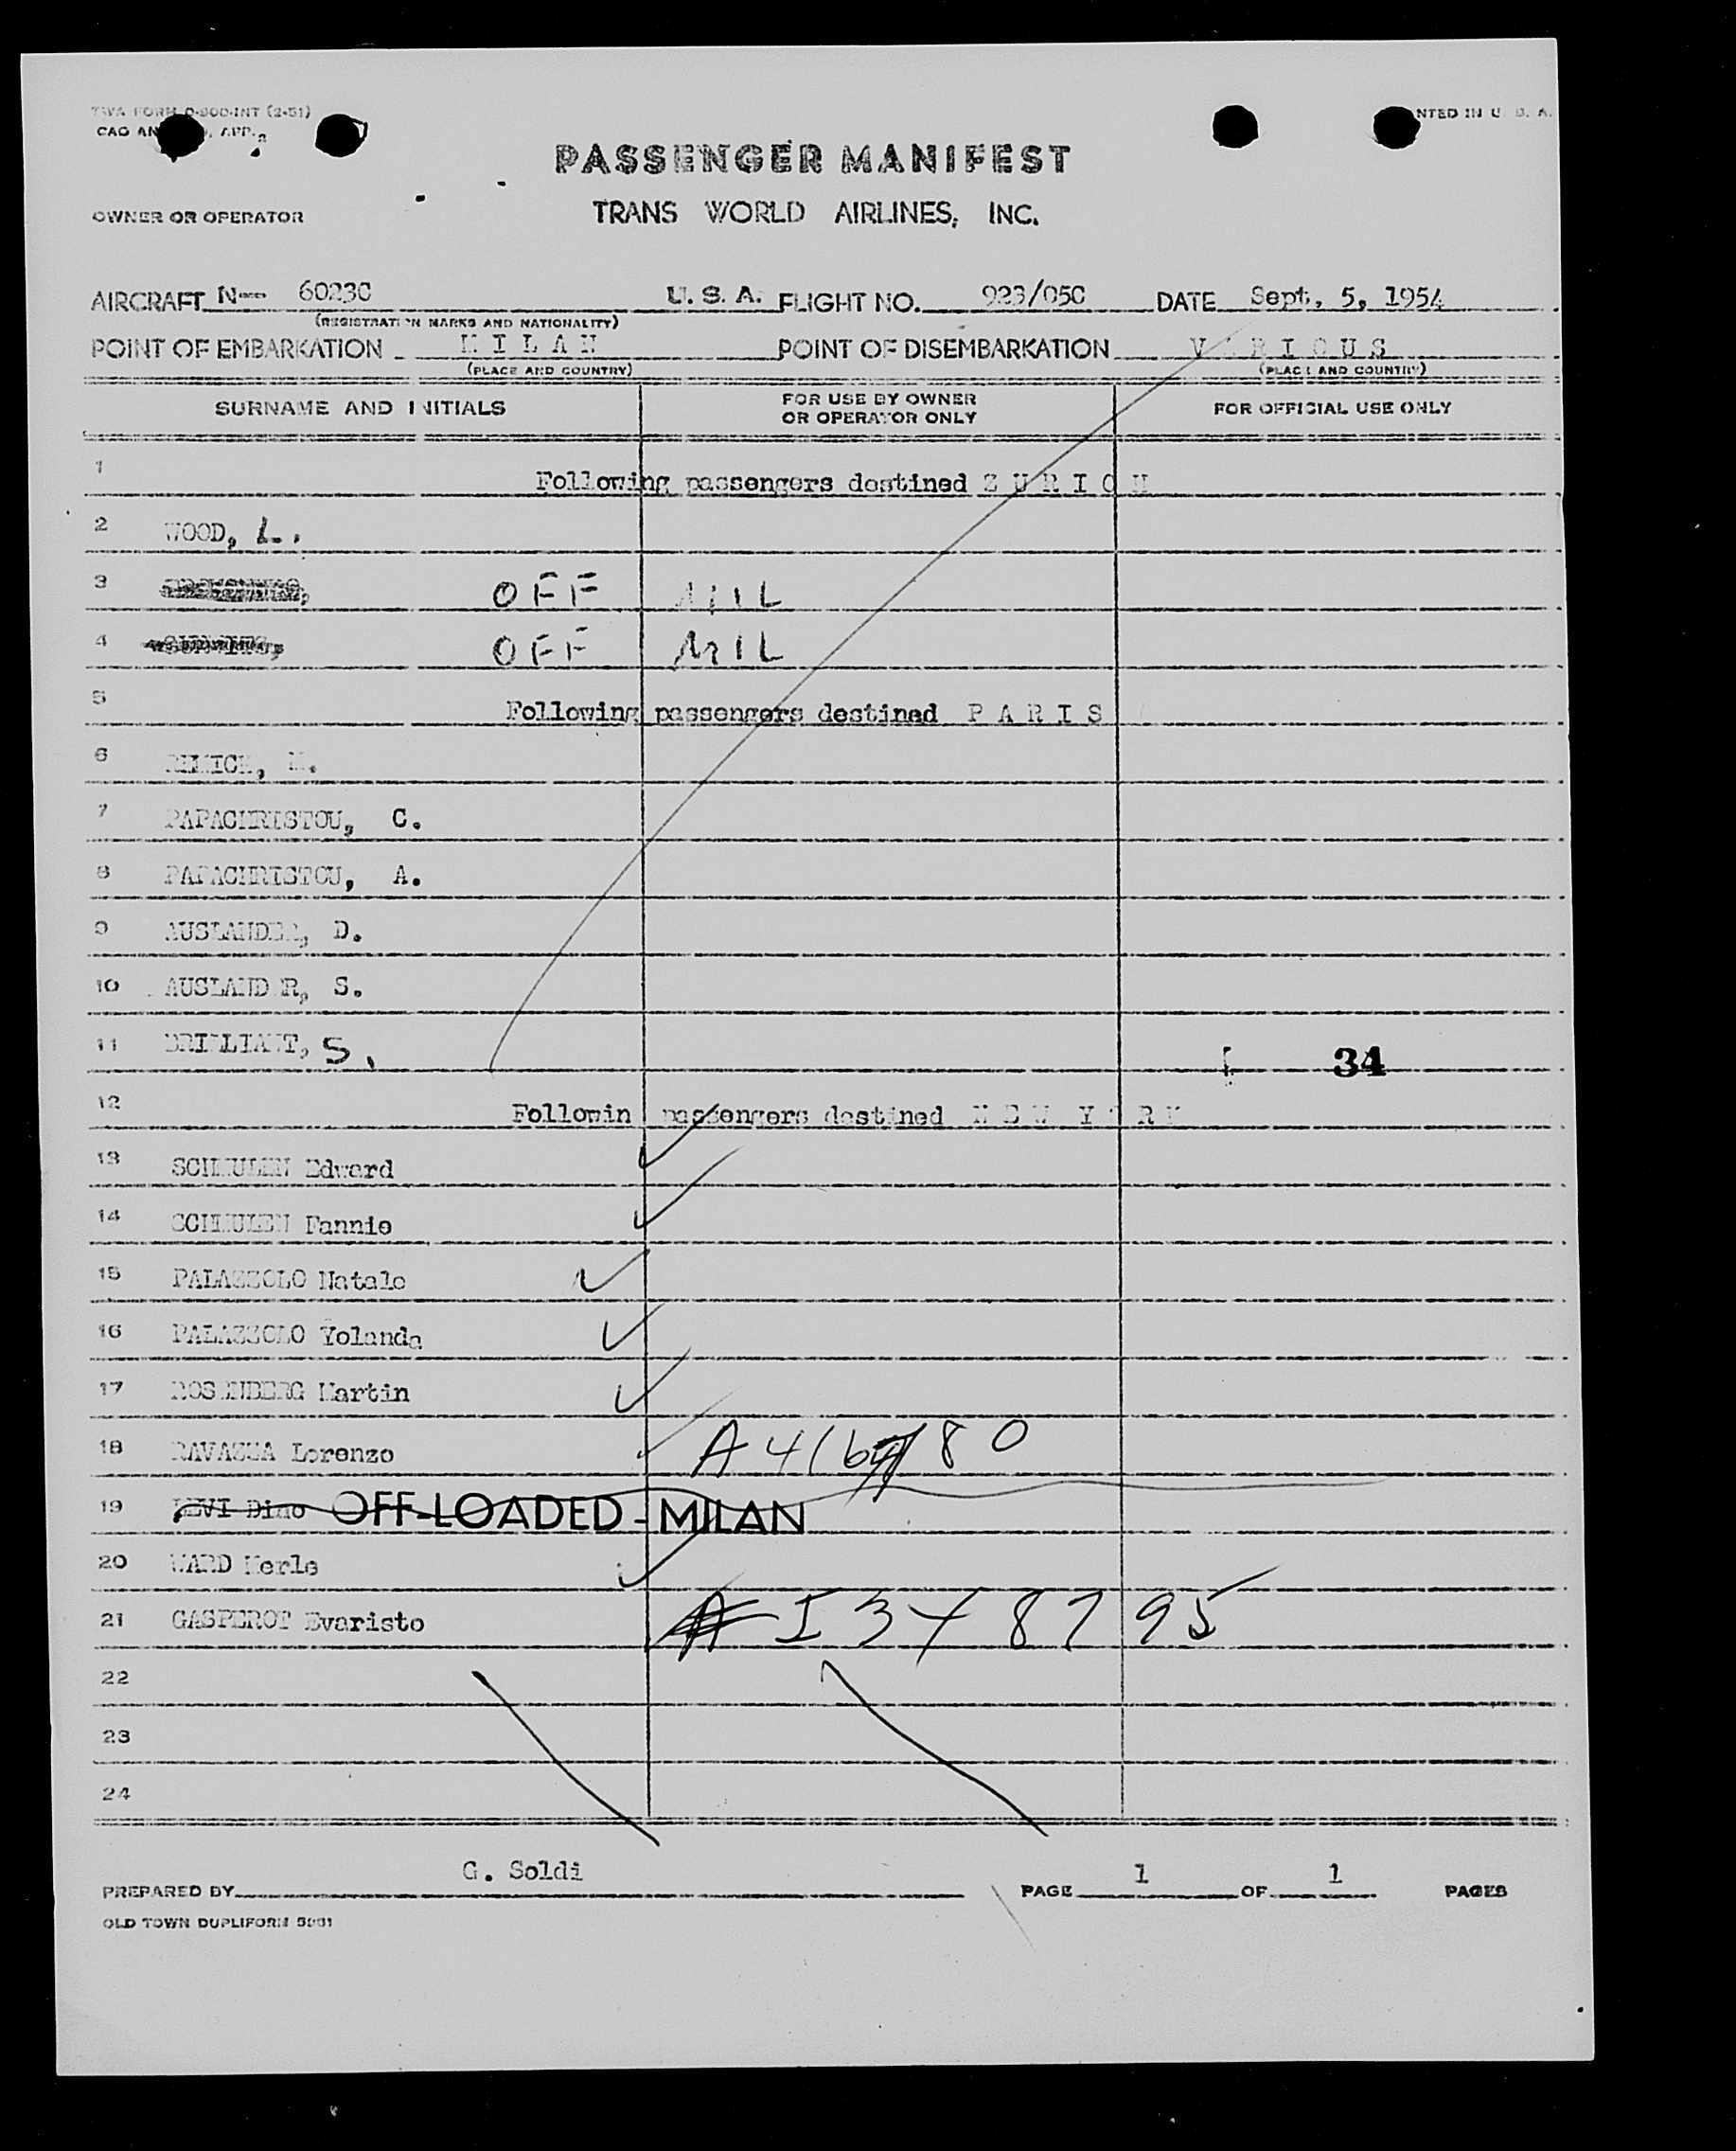 TWA FORM O-800-INT (2-51)
CAO AN APP. NTED IN U. S. A.
PASSENGER MANIFEST
OWNER OR OPERATOR TRANS WORLD AIRLINES, INC.
AIRCRAFT N-- 6023C U. S. A. FLIGHT NO. 923/05C DATE Sept. 5, 1954
(REGISTRATION MARKS AND NATIONALITY)
POINT OF EMBARKATION M I L A N POINT OF DISEMBARKATION V A R I O U S
(PLACE AND COUNTRY) (PLACE AND COUNTRY)
SURNAME AND INITIALS FOR USE BY OWNER OR OPERATOR ONLY FOR OFFICIAL USE ONLY
1 Following passengers destined Z U R I C H
2 WOOD, L.
3 OFF MIL
4 OFF MIL
5 Following passengers destined P A R I S
6
7 PAPACHRISTOU, C.
8 PAPACHRISTOU, A.
9 AUSLANDER, D.
10 AUSLAND R, S.
11 BRILLIANT, S. 34
12 Followin passengers destined N E W Y O R K
13 SCHMULEN Edward
14 SCHMULEN Fannie
15 PALAZZOLO Natale
16 PALAZZOLO Yolanda
17 ROSENBERG Martin
18 RAVAZZA Lorenzo A416 80
19 LEVI Dino OFF-LOADED - MILAN
20 WARD Merle
21 GASPEROT Evaristo A I348795
22
23
24
PREPARED BY G. Soldi PAGE 1 OF 1 PAGES
OLD TOWN DUPLIFORM